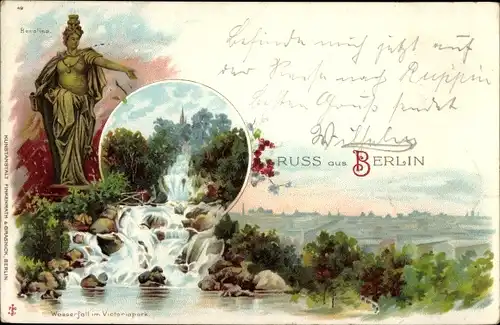 49
Berolina.
Befinde mich jetzt auf
der Reise nach Ruppin
Besten Gruß sendet
GRUSS aus BERLIN
KUNSTANSTALT FINKENRATH & GRASNICK, BERLIN
Wasserfall im Victoriapark.